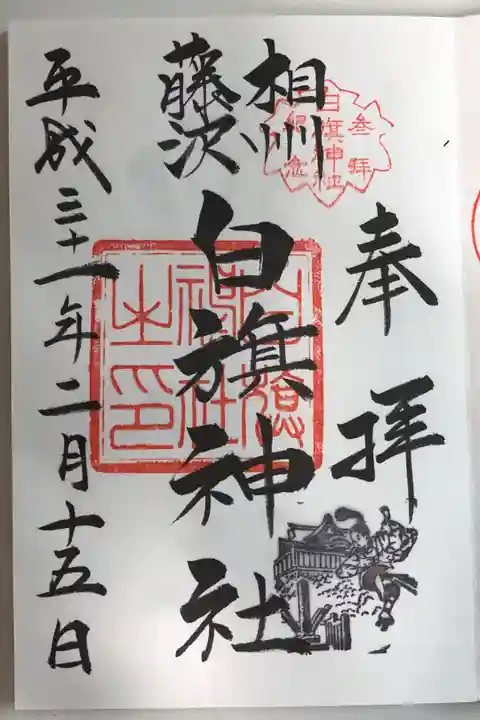 奉拝
相州
藤沢
白旗神社
平成三十一年二月十五日
参拝
白旗神社
紀念
白旗
神社
之印